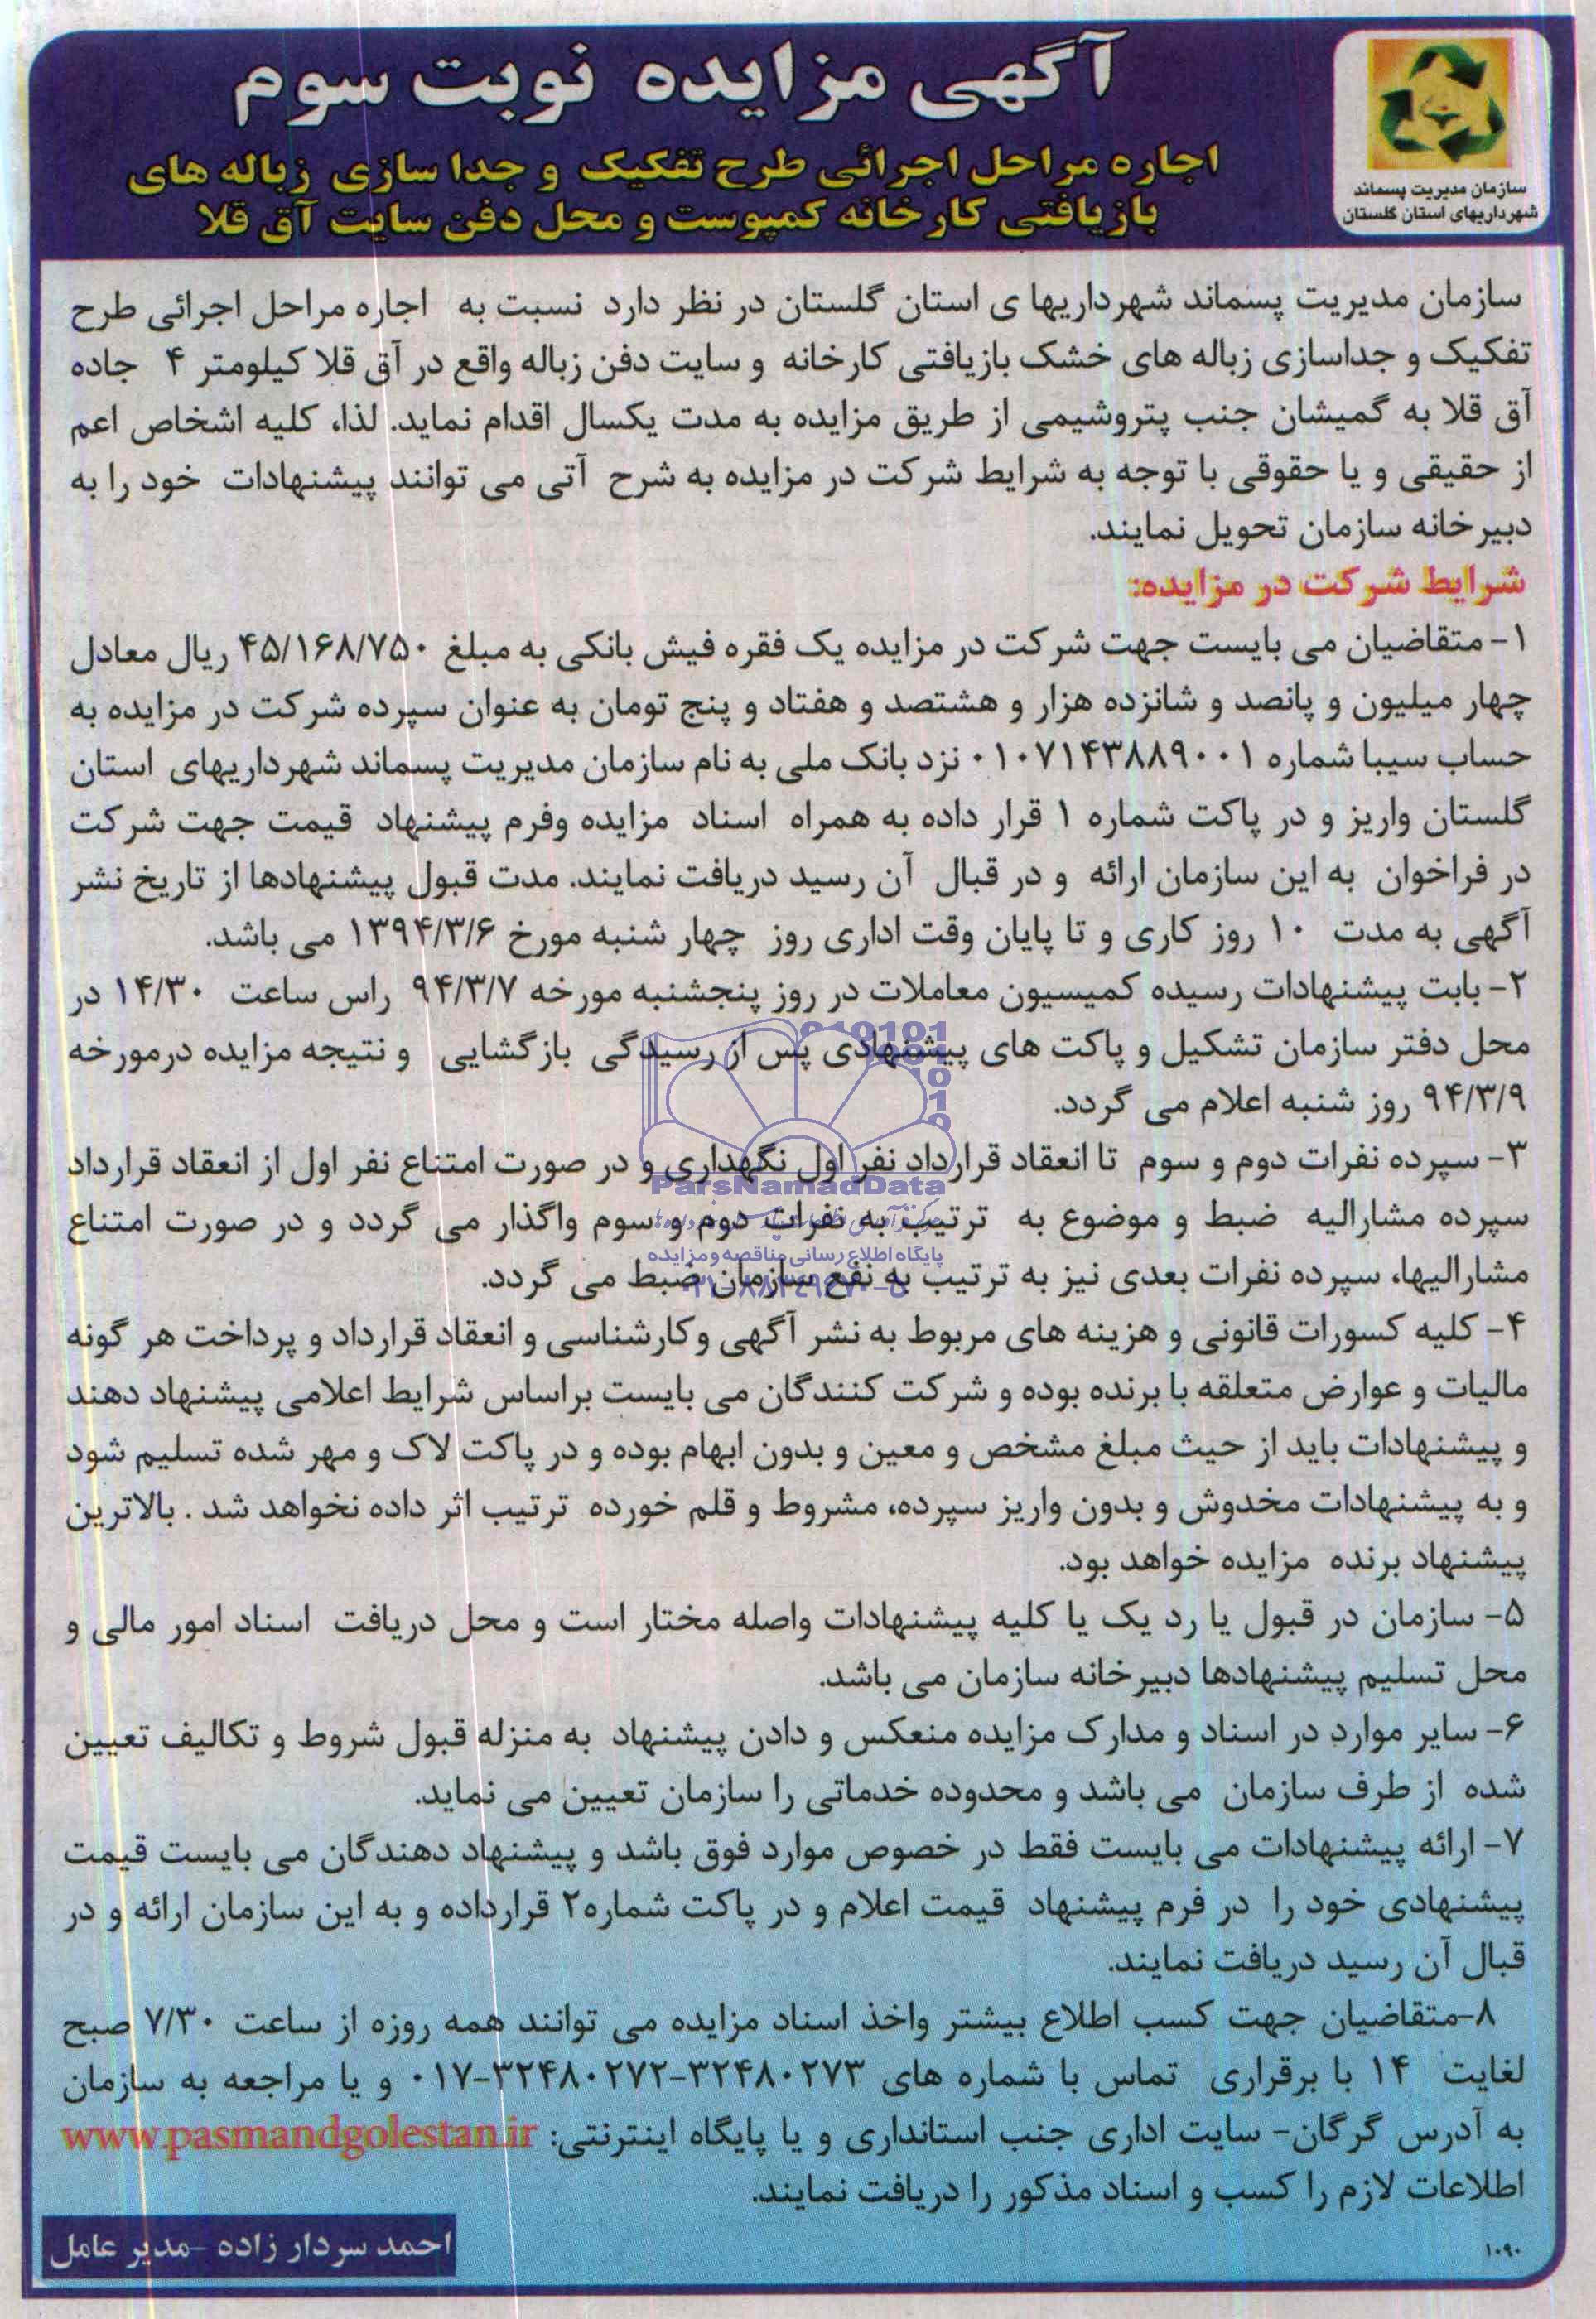 آگهی مزایده نوبت سوم
اجاره مراحل اجرائی طرح تفکیک و جدا سازی زباله های
بازیافتی کارخانه کمپوست و محل دفن سایت آق قلا
سازمان مدیریت پسماند
شهرداریهای استان گلستان
سازمان مدیریت پسماند شهرداریها ی استان گلستان در نظر دارد نسبت به اجاره مراحل اجرائی طرح
تفکیک و جداسازی زباله های خشک بازیافتی کارخانه و سایت دفن زباله واقع در آق قلا کیلومتر ۴ جاده
آق قلا به گمیشان جنب پتروشیمی از طریق مزایده به مدت یکسال اقدام نماید. لذا، کلیه اشخاص اعم
از حقیقی و یا حقوقی با توجه به شرایط شرکت در مزایده به شرح آتی می توانند پیشنهادات خود را به
دبیرخانه سازمان تحویل نمایند.
شرایط شرکت در مزایده:
۱- متقاضیان می بایست جهت شرکت در مزایده یک فقره فیش بانکی به مبلغ ۴۵/۱۶۸/۷۵۰ ریال معادل
چهار میلیون و پانصد و شانزده هزار و هشتصد و هفتاد و پنج تومان به عنوان سپرده شرکت در مزایده به
حساب سیبا شماره ۰۱۰۷۱۴۳۸۸۹۰۰۱ نزد بانک ملی به نام سازمان مدیریت پسماند شهرداریهای استان
گلستان واریز و در پاکت شماره ۱ قرار داده به همراه اسناد مزایده وفرم پیشنهاد قیمت جهت شرکت
در فراخوان به این سازمان ارائه و در قبال آن رسید دریافت نمایند. مدت قبول پیشنهادها از تاریخ نشر
آگهی به مدت ۱۰ روز کاری و تا پایان وقت اداری روز چهار شنبه مورخ ۱۳۹۴/۳/۶ می باشد.
۲- بابت پیشنهادات رسیده کمیسیون معاملات در روز پنجشنبه مورخه ۹۴/۳/۷ راس ساعت ۱۴/۳۰ در
محل دفتر سازمان تشکیل و پاکت های پیشنهادی پس از رسیدگی بازگشایی و نتیجه مزایده درمورخه
۹۴/۳/۹ روز شنبه اعلام می گردد.
۳- سپرده نفرات دوم و سوم تا انعقاد قرارداد نفر اول نگهداری و در صورت امتناع نفر اول از انعقاد قرارداد
ParsNamadData
سپرده مشارالیه ضبط و موضوع به ترتیب به نفرات دوم و سوم واگذار می گردد و در صورت امتناع
پایگاه اطلاع رسانی مناقصه و مزایده
مشارالیها، سپرده نفرات بعدی نیز به ترتیب به نفع سازمان ضبط می گردد.
۴- کلیه کسورات قانونی و هزینه های مربوط به نشر آگهی وکارشناسی و انعقاد قرارداد و پرداخت هر گونه
مالیات و عوارض متعلقه با برنده بوده و شرکت کنندگان می بایست براساس شرایط اعلامی پیشنهاد دهند
و پیشنهادات باید از حیث مبلغ مشخص و معین و بدون ابهام بوده و در پاکت لاک و مهر شده تسلیم شود
و به پیشنهادات مخدوش و بدون واریز سپرده، مشروط و قلم خورده ترتیب اثر داده نخواهد شد . بالاترین
پیشنهاد برنده مزایده خواهد بود.
۵- سازمان در قبول یا رد یک یا کلیه پیشنهادات واصله مختار است و محل دریافت اسناد امور مالی و
محل تسلیم پیشنهادها دبیرخانه سازمان می باشد.
۶- سایر موارد در اسناد و مدارک مزایده منعکس و دادن پیشنهاد به منزله قبول شروط و تکالیف تعیین
شده از طرف سازمان می باشد و محدوده خدماتی را سازمان تعیین می نماید.
۷- ارائه پیشنهادات می بایست فقط در خصوص موارد فوق باشد و پیشنهاد دهندگان می بایست قیمت
پیشنهادی خود را در فرم پیشنهاد قیمت اعلام و در پاکت شماره۲ قرارداده و به این سازمان ارائه و در
قبال آن رسید دریافت نمایند.
۸-متقاضیان جهت کسب اطلاع بیشتر واخذ اسناد مزایده می توانند همه روزه از ساعت ۷/۳۰ صبح
لغایت ۱۴ با برقراری تماس با شماره های ۳۲۴۸۰۲۷۳-۳۲۴۸۰۲۷۲-۰۱۷ و یا مراجعه به سازمان
به آدرس گرگان- سایت اداری جنب استانداری و یا پایگاه اینترنتی: www.pasmandgolestan.ir
اطلاعات لازم را کسب و اسناد مذکور را دریافت نمایند.
احمد سردار زاده -مدیر عامل
۱۰۹۰